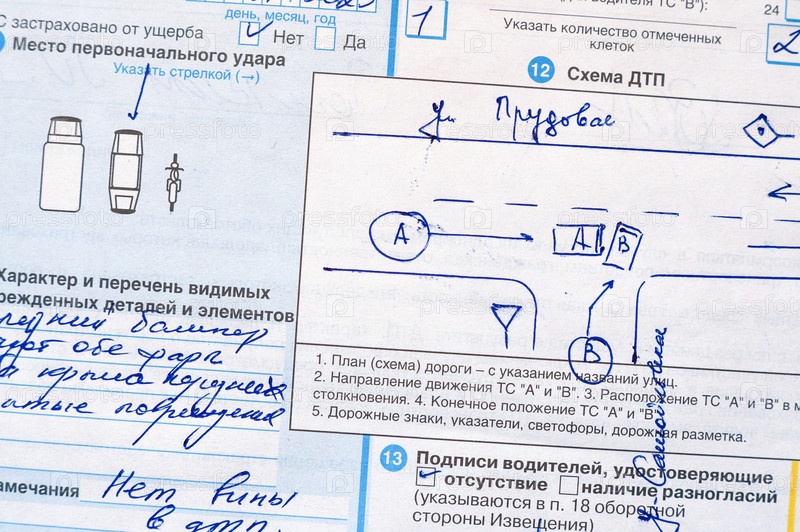 день, месяц, год
С застраховано от ущерба
Нет Да
Место первоначального удара
Указать стрелкой (→)
1
ТС "В"):
24
Указать количество отмеченных
клеток
2
12 Схема ДТП
ул Прудовая
А
А В
В
1. План (схема) дороги – с указанием названий улиц.
2. Направление движения ТС "А" и "В". 3. Расположение ТС "А" и "В" в м
столкновения. 4. Конечное положение ТС "А" и "В".
5. Дорожные знаки, указатели, светофоры, дорожная разметка.
Характер и перечень видимых
режденных деталей и элементов
бампер
обе фары
крыла
амечания Нет вины
в дтп.
13 Подписи водителей, удостоверяющие
отсутствие наличие разногласий
(указываются в п. 18 оборотной
стороны Извещения)
pressfoto